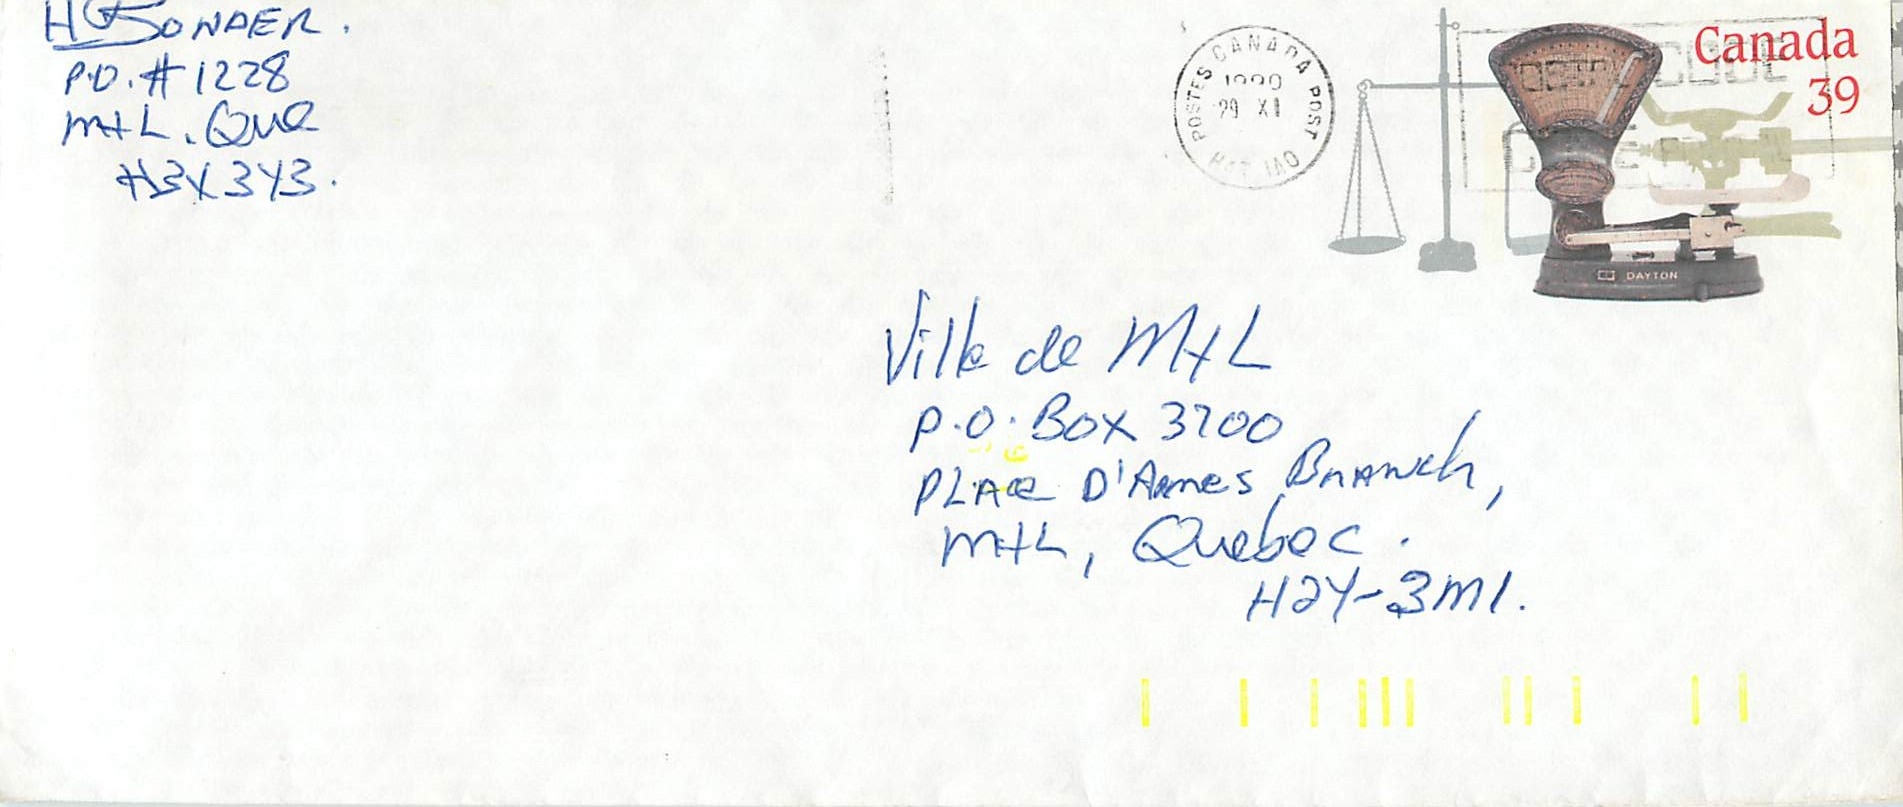 P.O. #1228
MtL. Que
H3X 3Y3.
POSTES CANADA POST
29 XI
Canada
39
POSTAL CODE
DAYTON
Ville de MtL
P.O. Box 3700
PLAce D'Armes Branch,
MtL, Quebec.
H2Y-3M1.